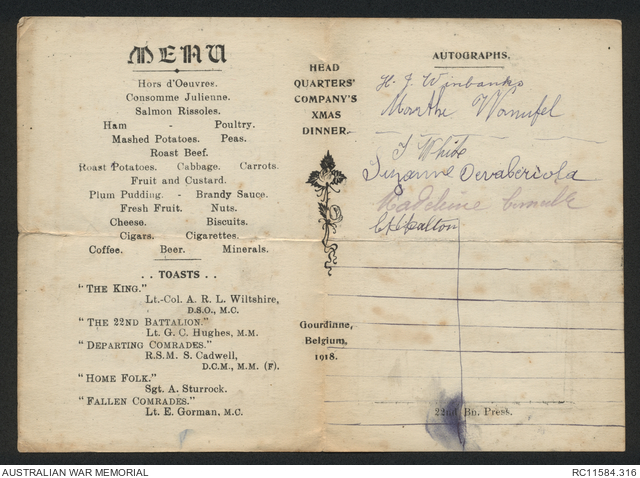 MENU
Hors d'Oeuvres.
Consomme Julienne.
Salmon Rissoles.
Ham - Poultry.
Mashed Potatoes. Peas.
Roast Beef.
Roast Potatoes. Cabbage. Carrots.
Fruit and Custard.
Plum Pudding. - Brandy Sauce.
Fresh Fruit. Nuts.
Cheese. Biscuits.
Cigars. Cigarettes.
Coffee. Beer. Minerals.
. . TOASTS . .
"THE KING."
Lt.-Col. A. R. L. Wiltshire,
D.S.O., M.C.
"THE 22ND BATTALION."
Lt. G. C. Hughes, M.M.
"DEPARTING COMRADES."
R.S.M. S. Cadwell,
D.C.M., M.M. (F).
"HOME FOLK."
Sgt. A. Sturrock.
"FALLEN COMRADES."
Lt. E. Gorman, M.C.
HEAD
QUARTERS'
COMPANY'S
XMAS
DINNER.
Gourdinne,
Belgium,
1918.
AUTOGRAPHS.
H. J. Winbanks
Marthe
White
Suzanne
Madeleine
22nd Bn. Press.
AUSTRALIAN WAR MEMORIAL
RC11584.316